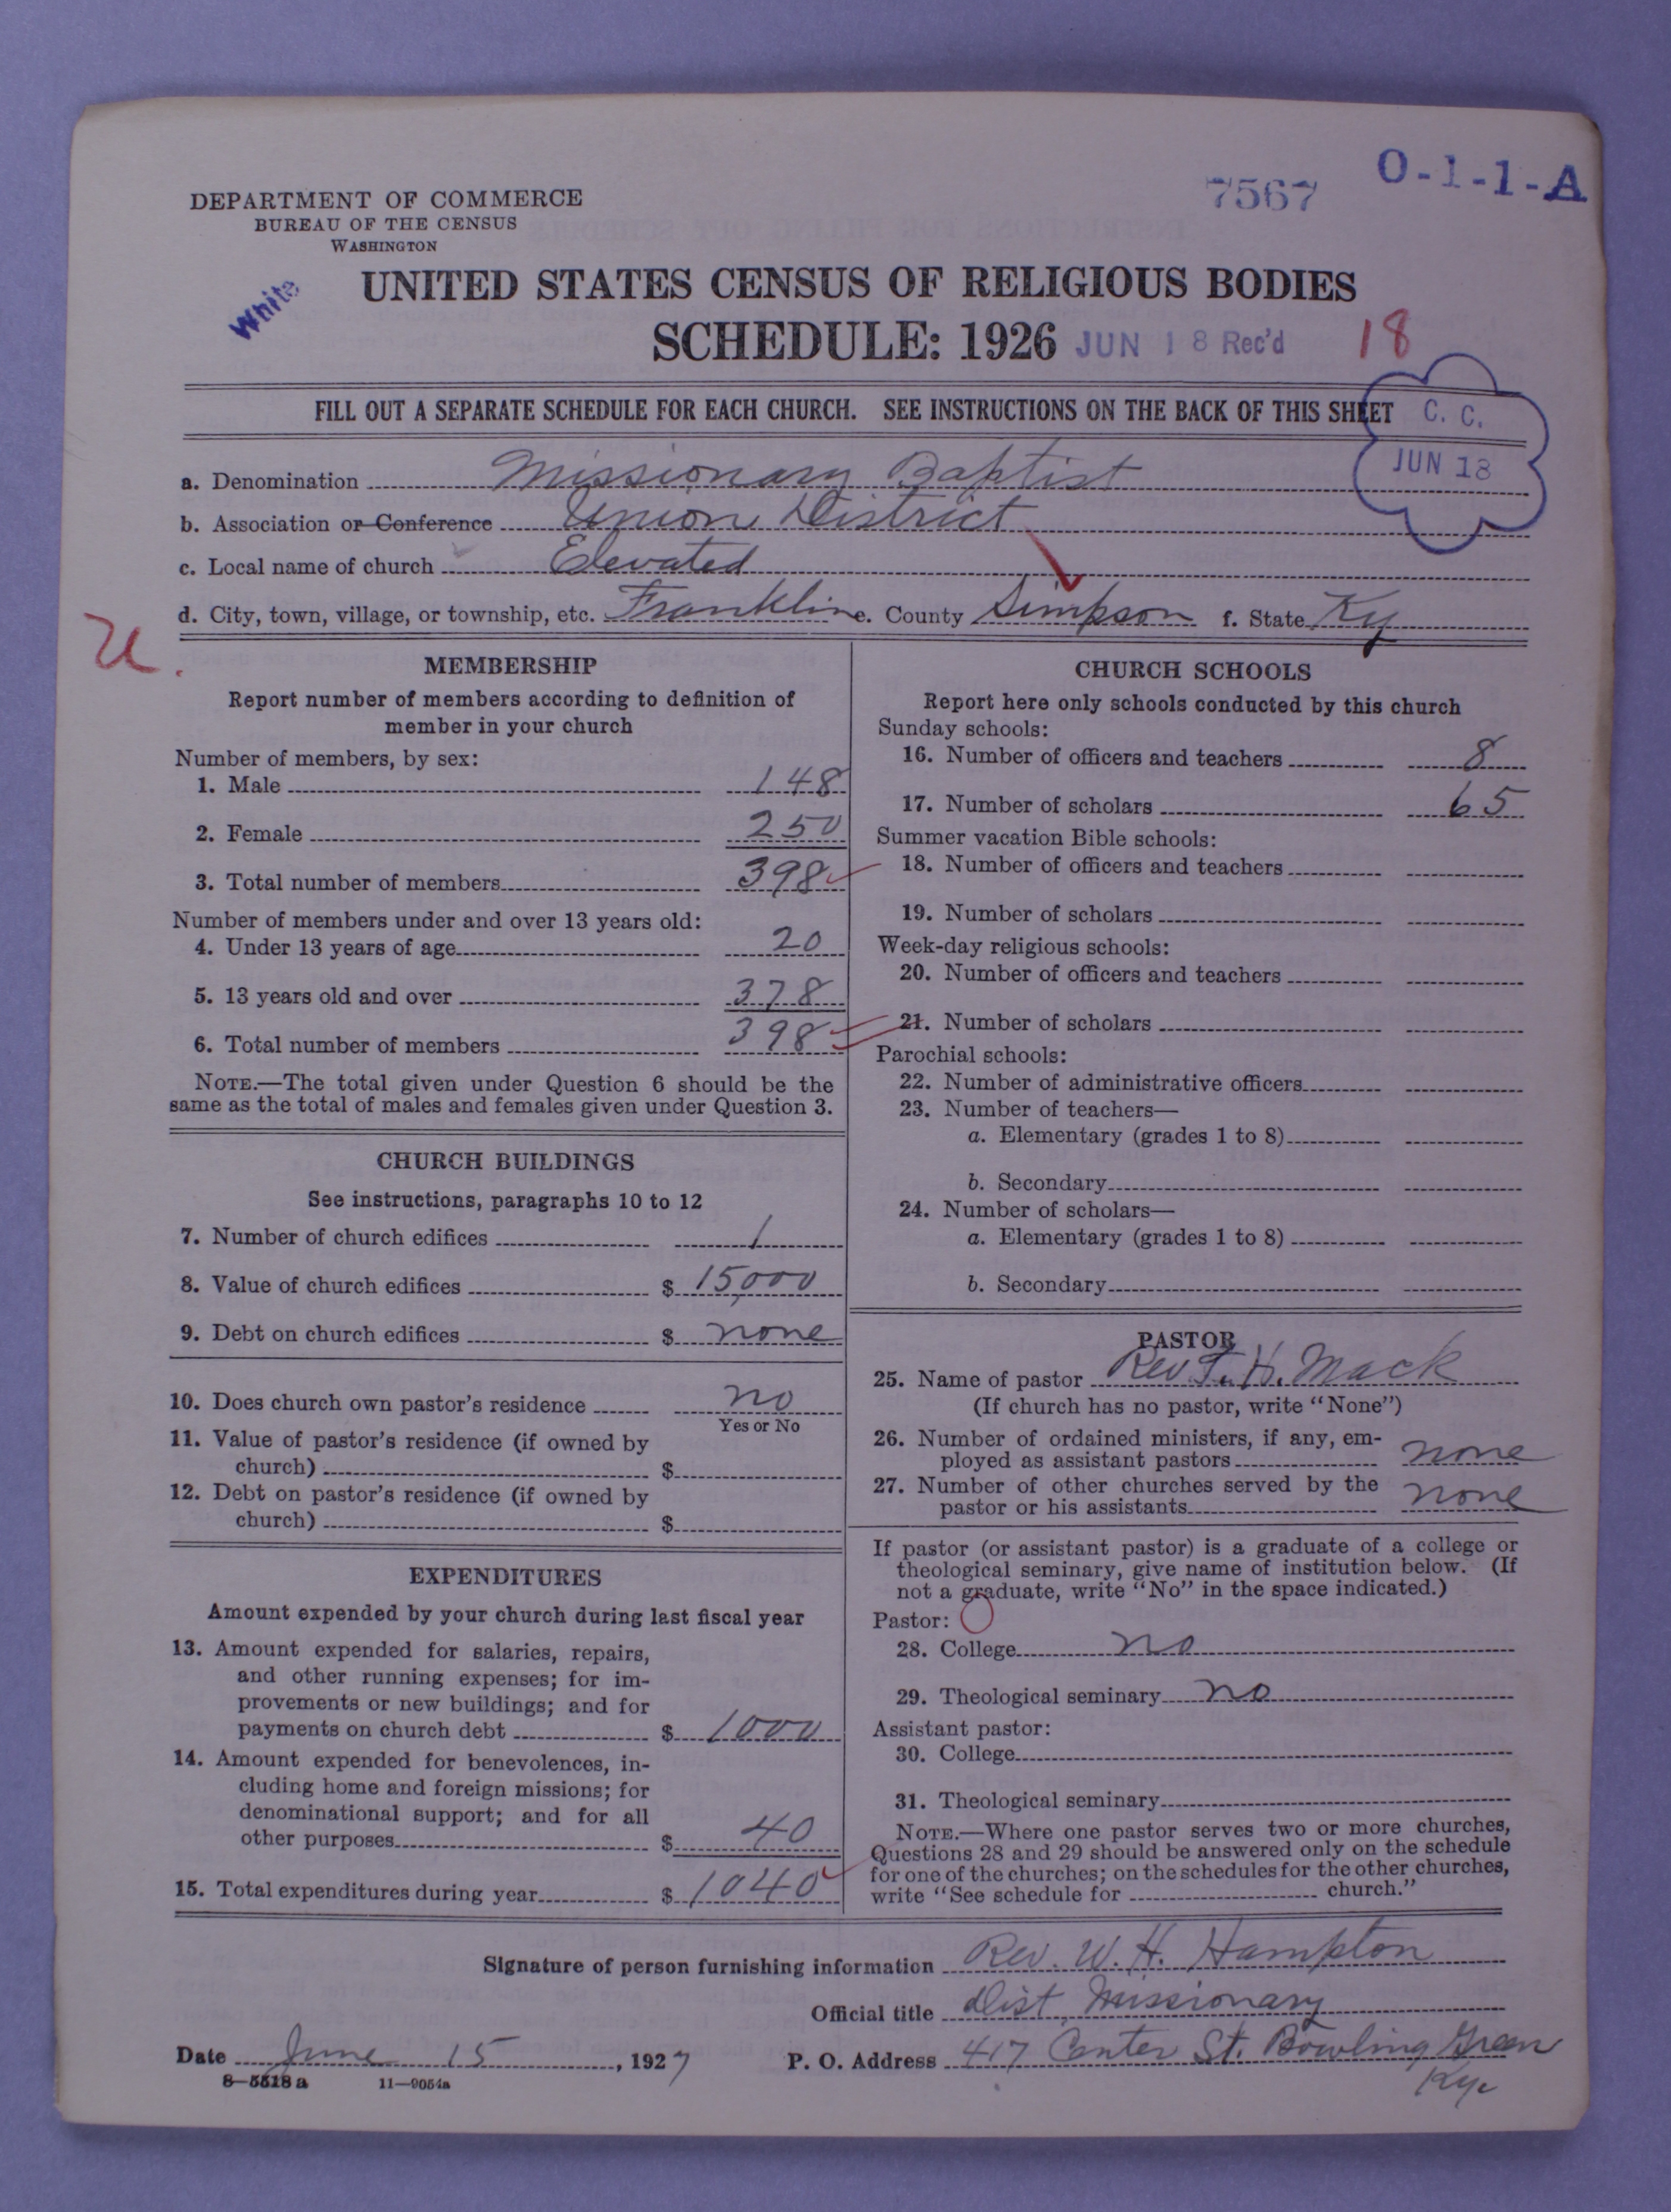 7567
O-1-1-A
DEPARTMENT OF COMMERCE
BUREAU OF THE CENSUS
WASHINGTON
White
UNITED STATES CENSUS OF RELIGIOUS BODIES
SCHEDULE: 1926 JUN 18 Rec'd 18
FILL OUT A SEPARATE SCHEDULE FOR EACH CHURCH. SEE INSTRUCTIONS ON THE BACK OF THIS SHEET
C. C.
JUN 18
a. Denomination Missionary Baptist
b. Association or Conference Union District
c. Local name of church Elevated
d. City, town, village, or township, etc. Franklin e. County Simpson f. State Ky
U.
MEMBERSHIP
Report number of members according to definition of
member in your church
Number of members, by sex:
1. Male 148
2. Female 250
3. Total number of members 398
Number of members under and over 13 years old:
4. Under 13 years of age 20
5. 13 years old and over 378
6. Total number of members 398
NOTE.—The total given under Question 6 should be the
same as the total of males and females given under Question 3.
CHURCH BUILDINGS
See instructions, paragraphs 10 to 12
7. Number of church edifices 1
8. Value of church edifices $ 15,000
9. Debt on church edifices $ none
10. Does church own pastor's residence no
Yes or No
11. Value of pastor's residence (if owned by
church) $
12. Debt on pastor's residence (if owned by
church) $
EXPENDITURES
Amount expended by your church during last fiscal year
13. Amount expended for salaries, repairs,
and other running expenses; for im-
provements or new buildings; and for
payments on church debt $ 1000
14. Amount expended for benevolences, in-
cluding home and foreign missions; for
denominational support; and for all
other purposes $ 40
15. Total expenditures during year $ 1040
CHURCH SCHOOLS
Report here only schools conducted by this church
Sunday schools:
16. Number of officers and teachers 8
17. Number of scholars 65
Summer vacation Bible schools:
18. Number of officers and teachers
19. Number of scholars
Week-day religious schools:
20. Number of officers and teachers
21. Number of scholars
Parochial schools:
22. Number of administrative officers
23. Number of teachers—
a. Elementary (grades 1 to 8)
b. Secondary
24. Number of scholars—
a. Elementary (grades 1 to 8)
b. Secondary
PASTOR
25. Name of pastor Rev. T. H. Mack
(If church has no pastor, write "None")
26. Number of ordained ministers, if any, em-
ployed as assistant pastors none
27. Number of other churches served by the
pastor or his assistants none
If pastor (or assistant pastor) is a graduate of a college or
theological seminary, give name of institution below. (If
not a graduate, write "No" in the space indicated.)
Pastor:
28. College no
29. Theological seminary no
Assistant pastor:
30. College
31. Theological seminary
NOTE.—Where one pastor serves two or more churches,
Questions 28 and 29 should be answered only on the schedule
for one of the churches; on the schedules for the other churches,
write "See schedule for church."
Signature of person furnishing information Rev. W. H. Hampton
Official title Dist. Missionary
Date June 15, 1927 P. O. Address 417 Center St. Bowling Green
Ky.
8—5518a 11—9054a